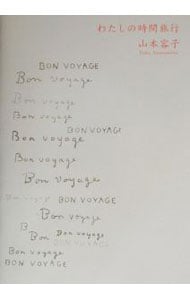 わたしの時間旅行
山本容子
Yoko Yamamoto
BON VOYAGE
Bon voyage
Bon voyage
Bon voyage
BON VOYAGE
Bon voyage
Bon voyage
Bon voyage
Bon voyage BON VOYAGE
Bon voyage
B
Bon Bon voyage
BON VOYAGE
Bon voyage
BON VOYAGE